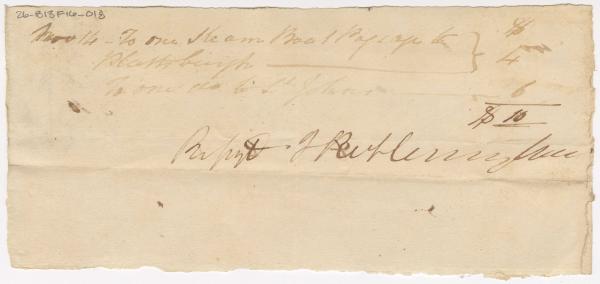 26-B13F16-013
Nov 14 - To one Steam Boat Passage to $
Plattsburgh 4
To one do to St Johns 6
$ 10